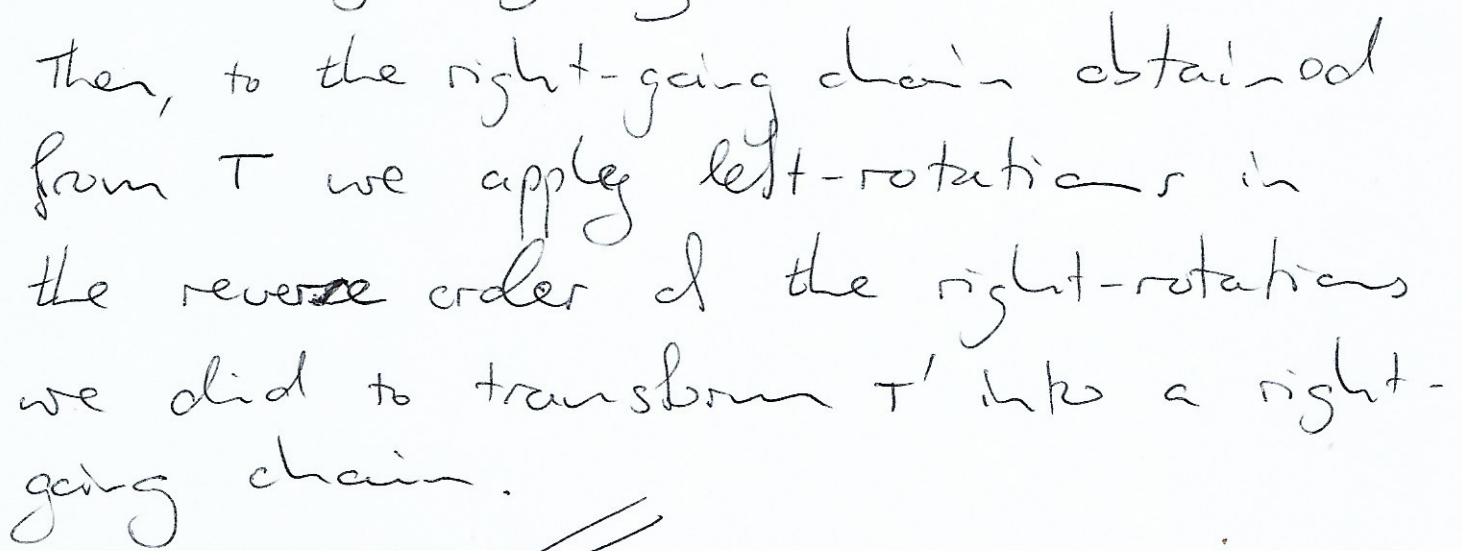 Then, to the right-going chain obtained
from T we apply left-rotations in
the reverse order of the right-rotations
we did to transform T' into a right-
going chain.